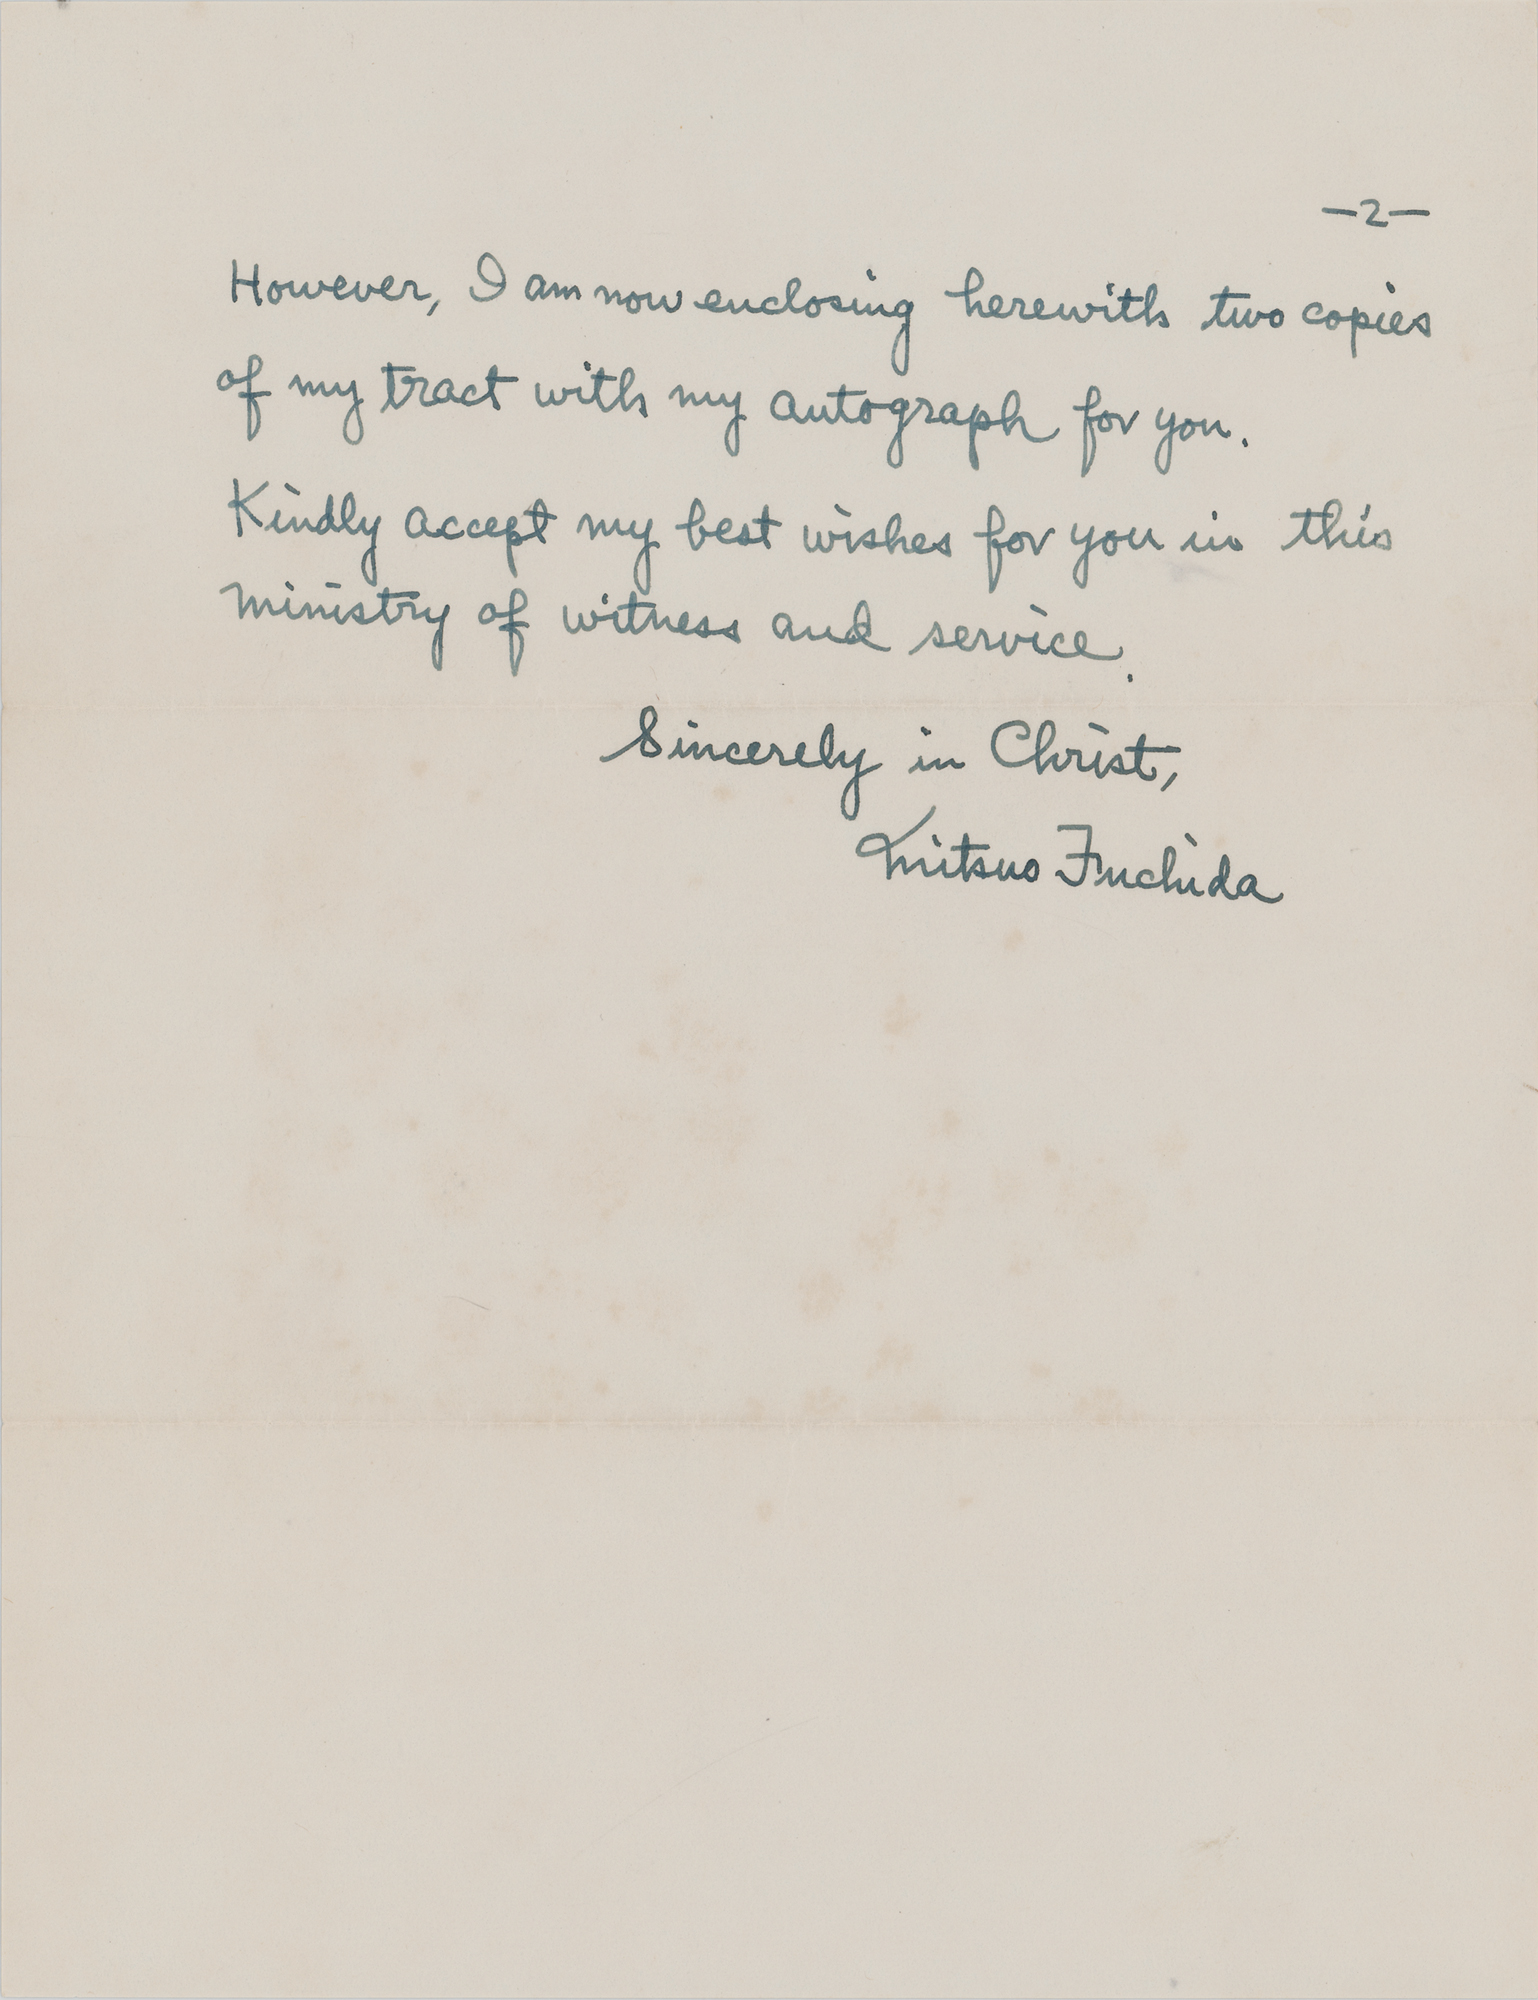 —2—
However, I am now enclosing herewith two copies
of my tract with my autograph for you.
Kindly accept my best wishes for you in this
ministry of witness and service.
Sincerely in Christ,
Mitsuo Fuchida